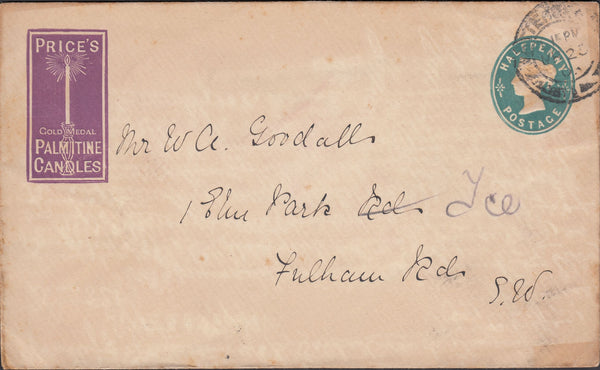 PRICE'S
GOLD MEDAL
PALMITINE
CANDLES
HALFPENNY
POSTAGE
Mr W A. Goodalls
1 Elm Park Rd Tce
Fulham Rd
S.W.